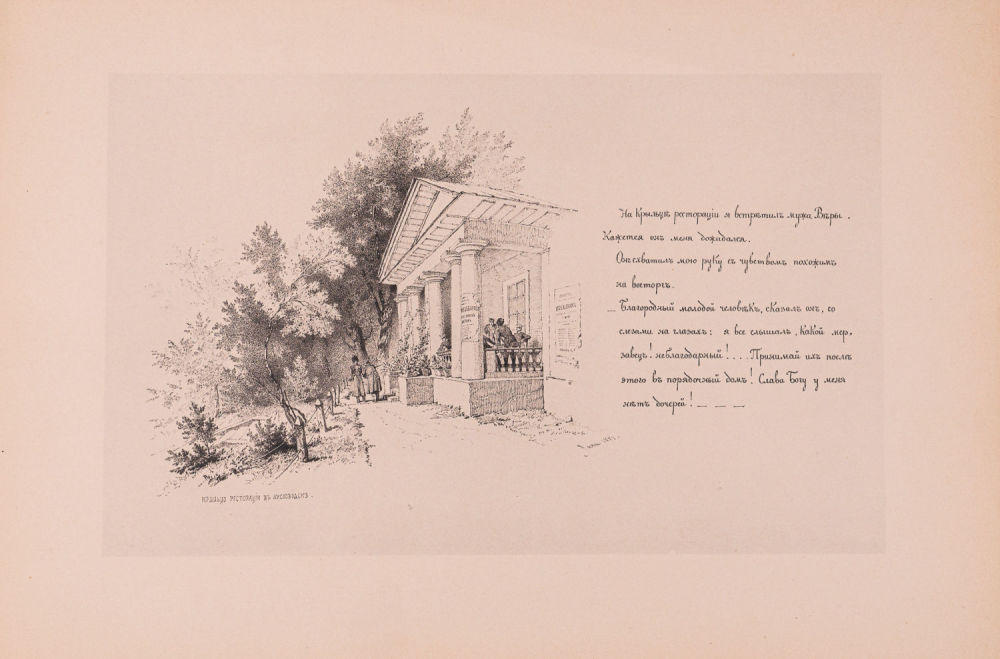 На крыльцѣ ресторацiи я встрѣтилъ мужа Вѣры.
Кажется онъ меня дожидался.
Онъ схватилъ мою руку съ чувствомъ похожимъ
на восторгъ.
— Благородный молодой человѣкъ, сказалъ онъ, со
слезами на глазахъ: я все слышалъ. Какой мер,
завецъ! неблагодарный!... Принимай ихъ послѣ
этого въ порядочный домъ! Слава Богу у меня
нѣтъ дочерей! — — —
КРЫЛЬЦО РЕСТОРАЦIИ ВЪ КИСЛОВОДСКѢ.